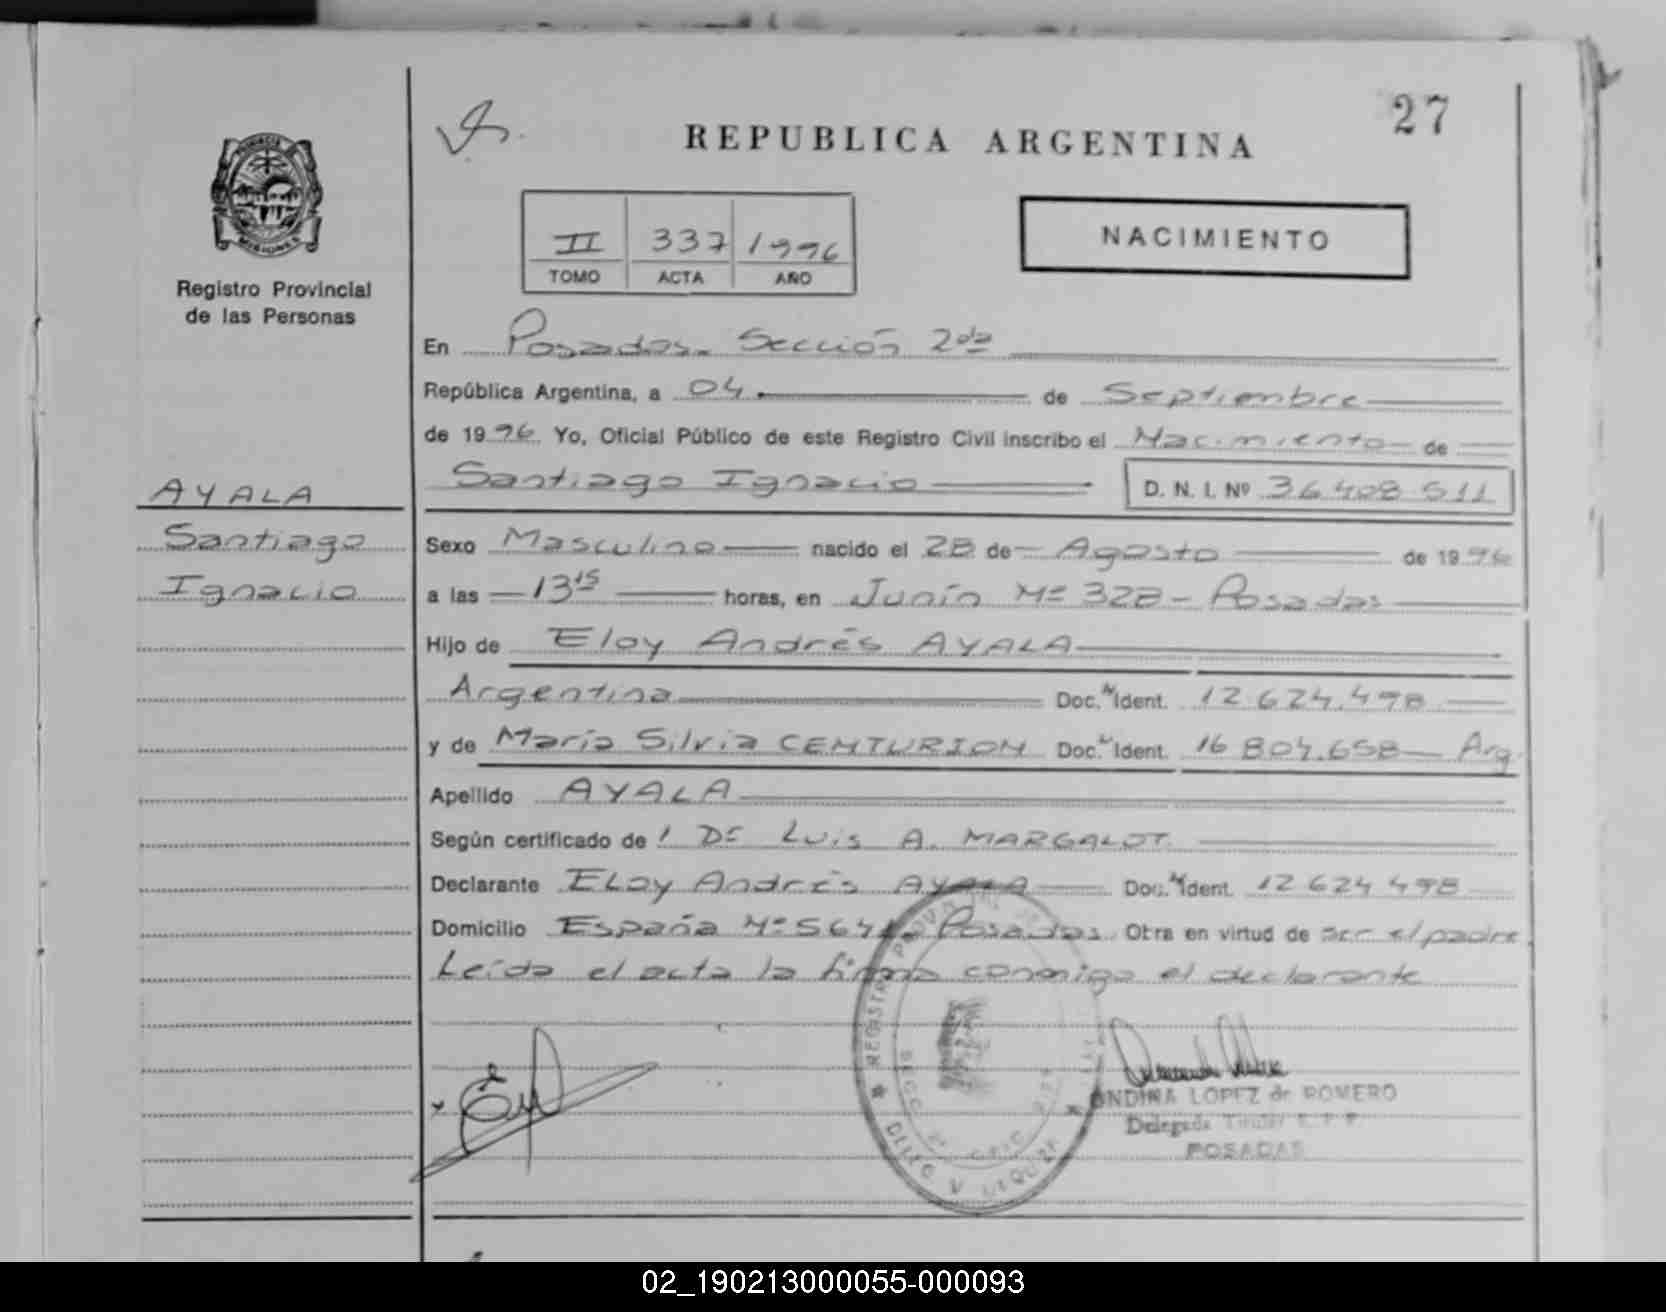 27
REPUBLICA ARGENTINA
PROVINCIA
MISIONES
Registro Provincial
de las Personas
II 337 1996
TOMO ACTA AÑO
NACIMIENTO
En Posadas - Sección 2da
República Argentina, a 04 de Septiembre
de 1996 Yo, Oficial Público de este Registro Civil inscribo el Nacimiento de
AYALA
Santiago Ignacio D. N. I. Nº 36.408.511
Santiago
Ignacio
Sexo Masculino nacido el 28 de Agosto de 1996
a las 13 15 horas, en Junín Nº 328 - Posadas
Hijo de Eloy Andrés AYALA
Argentina Doc. Ident. 12.624.498
y de María Silvia CENTURION Doc. Ident. 16.804.658 Arg.
Apellido AYALA
Según certificado de / Dr Luis A. MARGALOT.
Declarante ELoy Andrés AYALA Doc. Ident. 12.624.498
Domicilio España Nº 564 - Posadas Otra en virtud de ser el padre
Leída el acta la firma conmigo el declarante
REGISTRO PROVINCIAL DE
SECC. 2ª
ONDINA LOPEZ de ROMERO
Delegada Titular R. P. P.
POSADAS
02_190213000055-000093